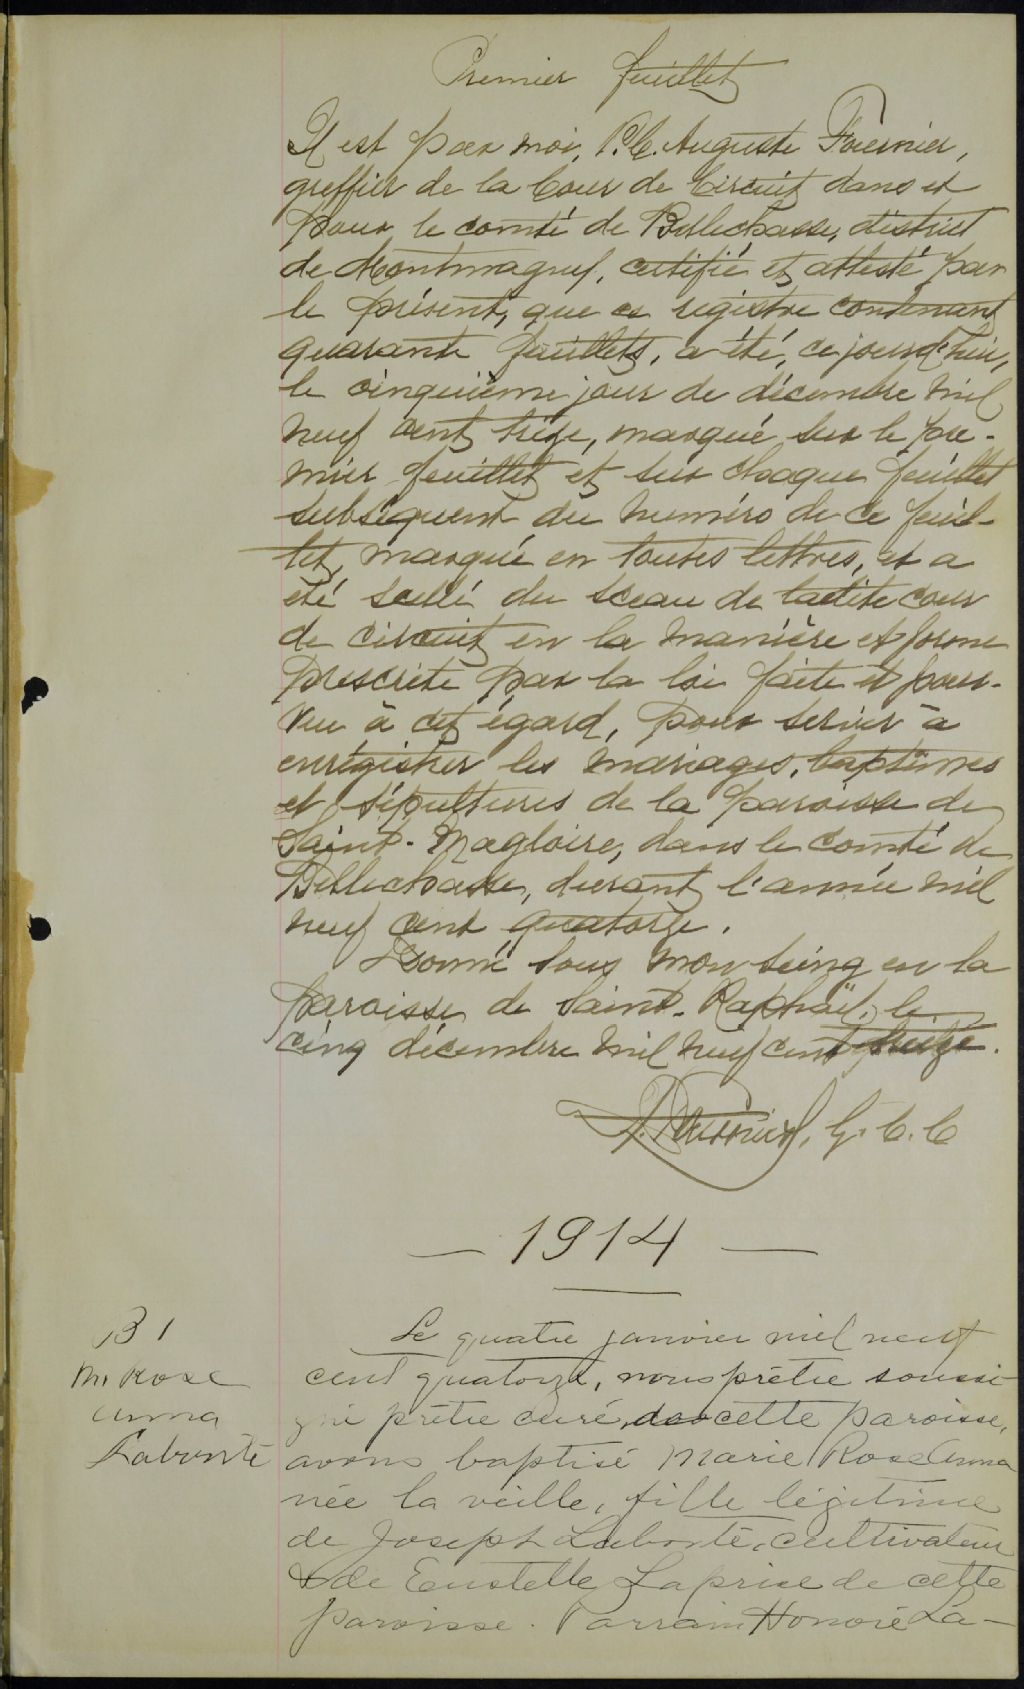 Premier feuillet
Il est par moi, P. C. Auguste Fournier,
greffier de la Cour de Circuit dans et
pour le comté de Bellechasse, district
de Montmagny, certifié et attesté par
le présent, que ce registre contenant
quarante feuillets, a été, ce jourd'hui,
le cinquième jour de décembre mil
neuf cent treize, marqué sur le pre-
mier feuillet et sur chaque feuillet
subséquent du numéro de ce feuil-
let, marqué en toutes lettres, et a
été scellé du sceau de ladite cour
de circuit en la manière et forme
prescrite par la loi faite et pour-
vue à cet égard, pour servir à
enrégistrer les mariages, baptêmes
et sépultures de la paroisse de
Saint-Magloire, dans le comté de
Bellechasse, durant l'année mil
neuf cent quatorze.
Donné sous mon seing en la
paroisse de Saint-Raphaël, le
cinq décembre mil neuf cent treize.
A. Fournier, G. C. C
— 1914 —
B 1
M. Rose
Anna
Labonté
Le quatre janvier mil neuf
cent quatorze, nous prêtre soussi-
gné prêtre curé de cette paroisse,
avons baptisé Marie Rose Anna
née la veille, fille légitime
de Joseph Labonté, cultivateur
& de Eustelle Laprise de cette
paroisse. Parrain Honoré La-